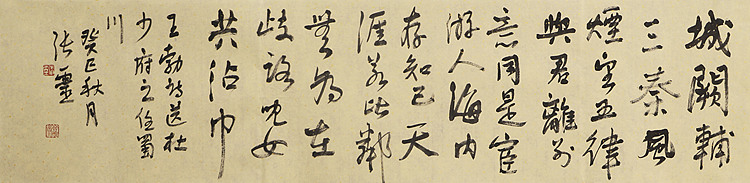 城闕輔
三秦風
煙望五津
與君離別
意同是宦
游人海內
存知己天
涯若比鄰
無為在
歧路兒女
共沾巾
王勃詩送杜
少府之任蜀
川
癸巳秋月
張靈